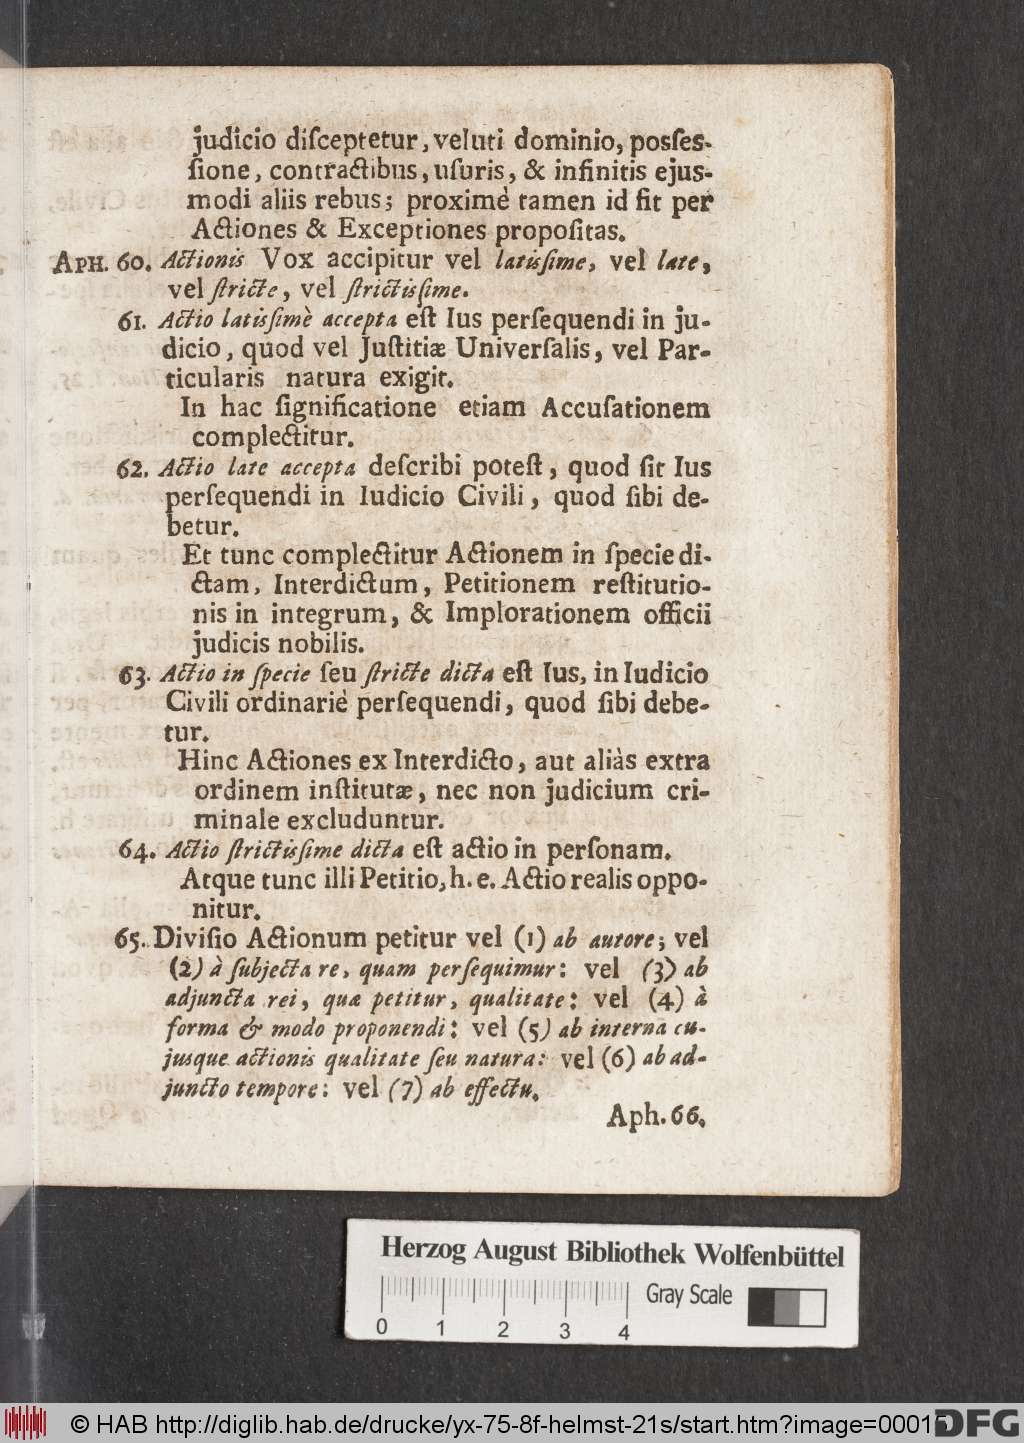 judicio diſceptetur, veluti dominio, posſes-
ſione, contractibus, uſuris, & infinitis ejus-
modi aliis rebus; proximè tamen id fit per
Actiones & Exceptiones propoſitas.
APH. 60. Actionis Vox accipitur vel latisſime, vel late,
vel ſtricte, vel ſtrictisſime.
61. Actio latisſimè accepta eſt Ius perſequendi in ju-
dicio, quod vel Juſtitiæ Univerſalis, vel Par-
ticularis natura exigit.
In hac ſignificatione etiam Accuſationem
complectitur.
62. Actio late accepta deſcribi poteſt, quod ſit Ius
perſequendi in Iudicio Civili, quod ſibi de-
betur.
Et tunc complectitur Actionem in ſpecie di-
ctam, Interdictum, Petitionem reſtitutio-
nis in integrum, & Implorationem officii
judicis nobilis.
63. Actio in ſpecie ſeu ſtricte dicta eſt Ius, in Iudicio
Civili ordinariè perſequendi, quod ſibi debe-
tur.
Hinc Actiones ex Interdicto, aut aliàs extra
ordinem inſtitutæ, nec non judicium cri-
minale excluduntur.
64. Actio ſtrictisſime dicta eſt actio in perſonam.
Atque tunc illi Petitio, h. e. Actio realis oppo-
nitur.
65. Diviſio Actionum petitur vel (1) ab autore; vel
(2) à ſubjecta re, quam perſequimur: vel (3) ab
adjuncta rei, quæ petitur, qualitate: vel (4) à
forma & modo proponendi: vel (5) ab interna cu-
jusque actionis qualitate ſeu natura: vel (6) ab ad-
juncto tempore: vel (7) ab effectu.
Aph. 66.
Herzog August Bibliothek Wolfenbüttel
Gray Scale
0 1 2 3 4
© HAB http://diglib.hab.de/drucke/yx-75-8f-helmst-21s/start.htm?image=00015
DFG